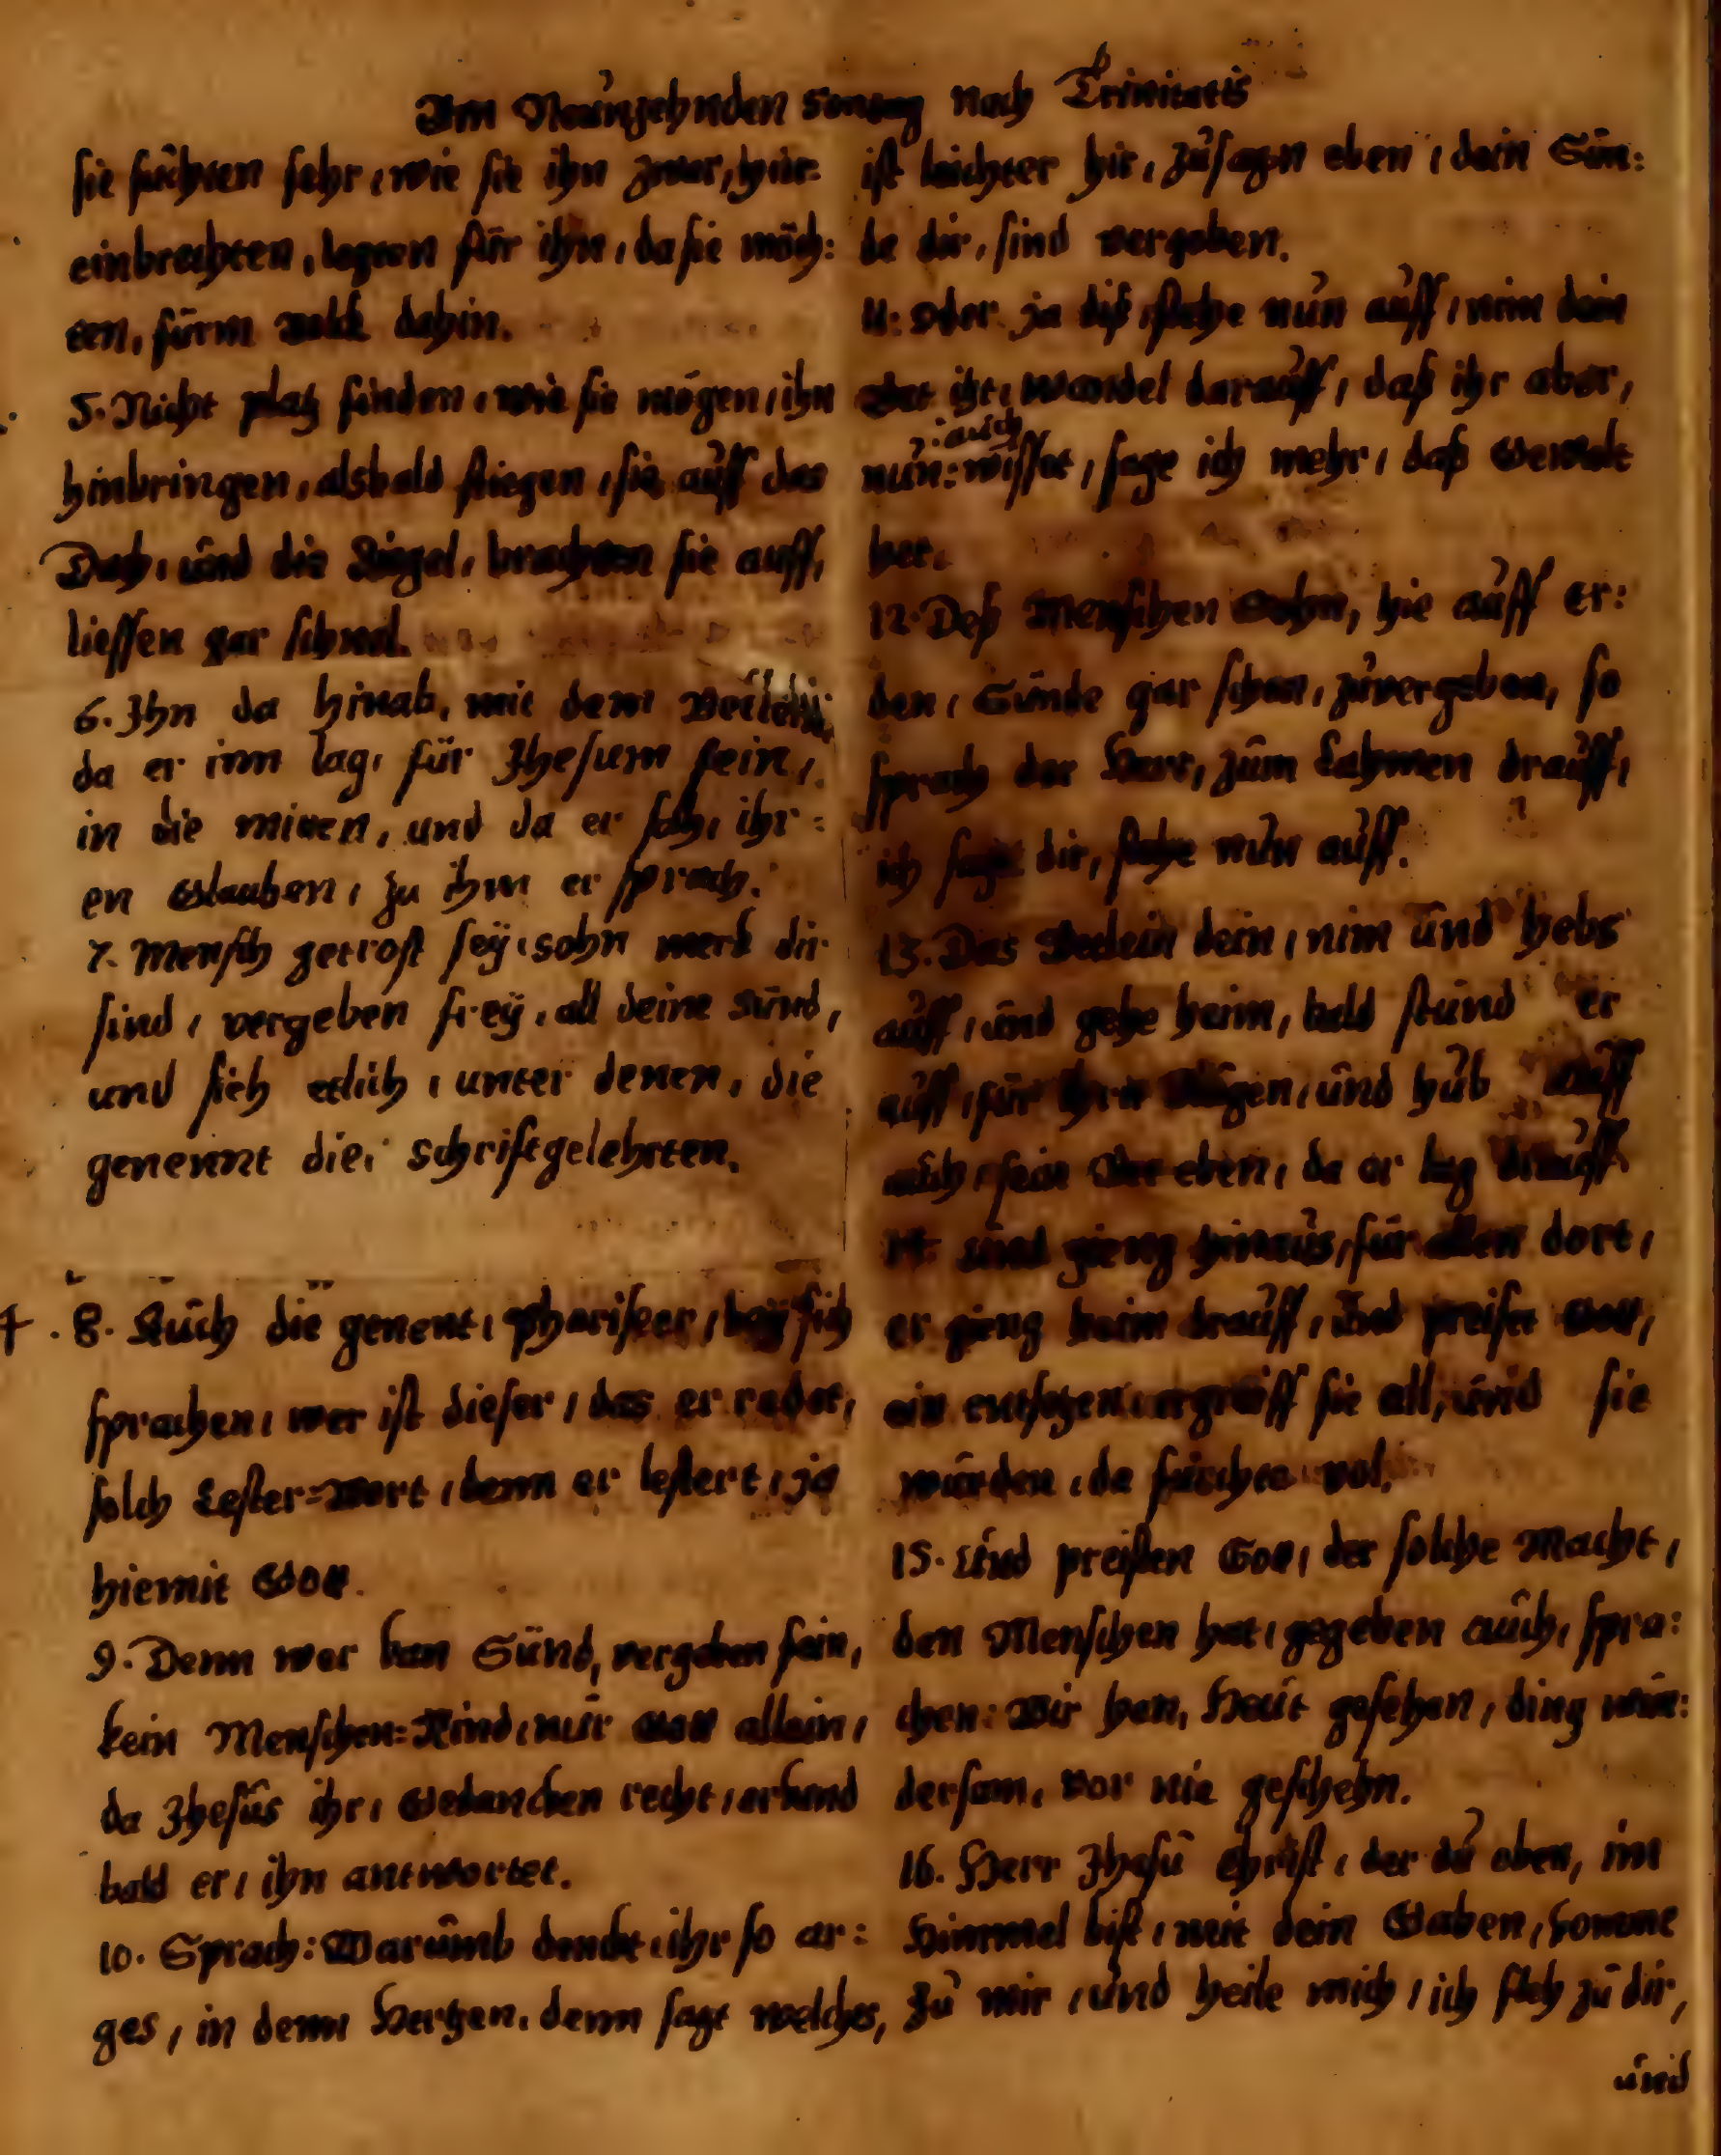 Am Neunzehnden Sontag nach Trinitatis
sie suchten sehr, wie sie ihn zwar, hin-
einbrechten, legten für ihn, da sie möch:
ten, fürm volck dahin.
5. Nicht platz finden, wie sie mögen, ihn
hinbringen, alsbald stiegen, sie auff das
Dach, und die Ziegel, brachten sie auff,
liessen gar schnel.
6. Ihn da hinab, mit dem Bettlein
da er inn lag, für Jhesum fein,
in die mitten, und da er sah, ihr:
en Glauben, zu ihm er sprach.
7. Mensch getrost sey, sohn merk dir
sind, vergeben frey, all deine Sünd,
und sieh etlich, unter denen, die
genennt die, Schriftgelehrten.
8. Auch die genent, Phariseer, bey sich
sprachen, wer ist dieser, das er redet,
solch Lester-Wort, denn er lestert, ja
hiemit Gott.
9. Denn wer kan Sünd, vergeben fein,
kein Menschen-Kind, nur Gott allein,
da Jhesus ihr, Gedancken recht, erkand
bald er, ihn antwortet.
10. Sprach: Warumb denckt ihr so ar:
ges, in denn Hertzen, denn sagt welches,
ist leichter hie, zusagen eben, dein Sün:
de dir, sind vergeben.
11. Oder ja diß, stehe nun auff, nim dein
Bet ihr, wandel darauff, daß ihr aber,
auch
nun: wisset, sage ich mehr, daß Gewalt
her.
12. Deß Menschen Sohn, hie auff Er:
den, Sünde gar schon, zuvergeben, so
sprach der Herr, zum Lahmen drauff,
ich sage dir, stehe nun auff.
13. Das Betlein dein, nim und hebs
auff, und gehe heim, bald stund er
auff, für ihrn Augen, und hub auff
auch, sein Bet eben, da er lag drauff
14. Und gieng hinaus, für allen dort,
er gieng heim drauff, und preiset Gott,
ein entsetzen, ergreiff sie all, und sie
wurden, da furchte vol.
15. Und preisten Gott, der solche Macht,
den Menschen hat, gegeben auch, spra:
chen: Wir han, Heut gesehen, ding wün:
dersam, vor nie geschehn.
16. Herr Jhesu Christ, der du oben, im
Himmel bist, mit dein Gaben, komme
Zu mir, und heile mich, ich fleh zu dir,
und